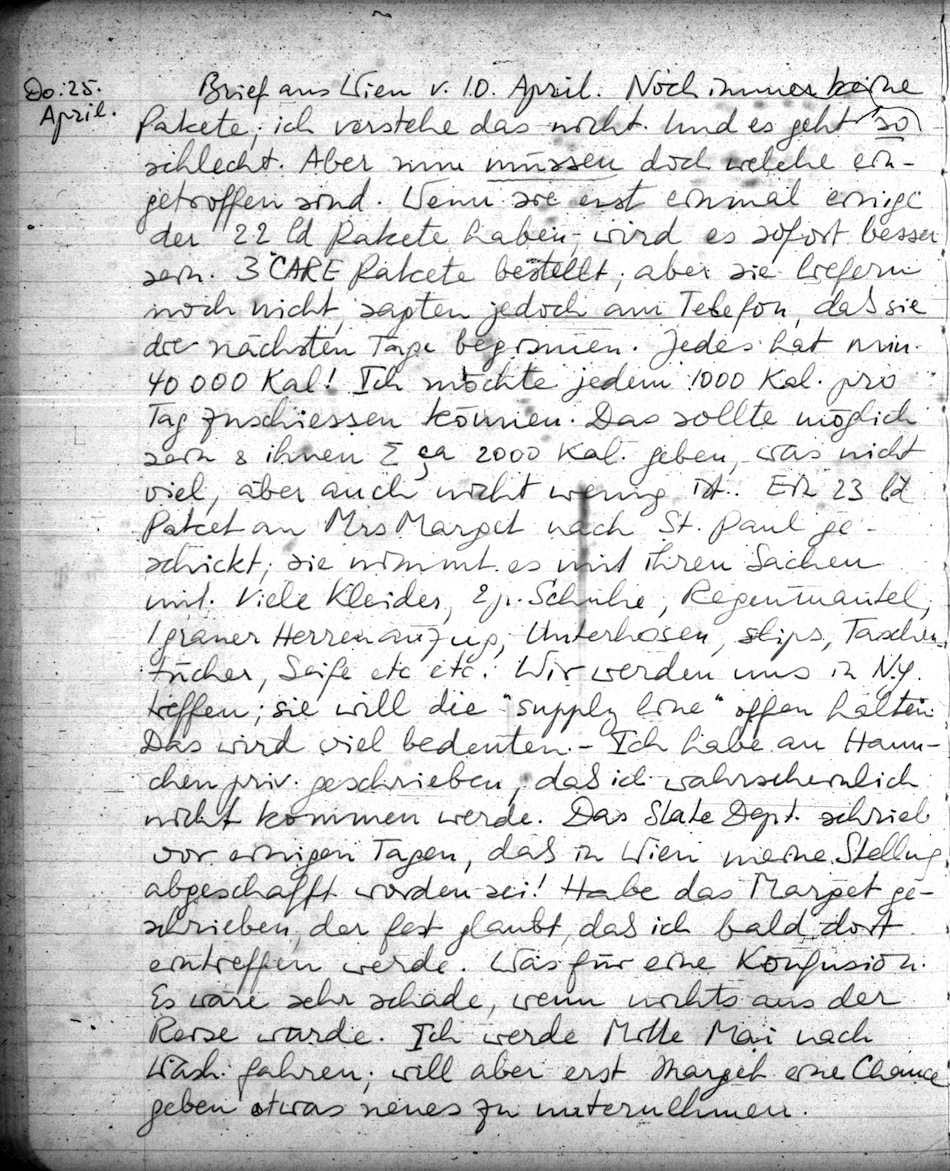 Do. 25. April.
Brief aus Wien v. 10. April. Noch immer keine
Pakete; ich verstehe das nicht. Und es geht so
schlecht. Aber nun müssen doch welche ein-
getroffen sind. Wenn sie erst einmal einige
der 22 lb Pakete haben, wird es sofort besser
sein. 3 CARE Pakete bestellt; aber sie liefern
noch nicht, sagten jedoch am Telefon, daß sie
die nächsten Tage beginnen. Jedes hat min.
40 000 Kal! Ich möchte jedem 1000 Kal. pro
Tag zuschiessen können. Das sollte möglich
sein & ihnen Σ ca 2000 Kal. geben, was nicht
viel, aber auch nicht wenig ist. Ein 23 lb
Paket an Mrs Marget nach St. Paul ge-
schickt; sie nimmt es mit ihren Sachen
mit. Viele Kleider, 2 p. Schuhe, Regenmantel,
1 grauer Herrenanzug, Unterhosen, slips, Taschen
tücher, Seife etc etc. Wir werden uns in N.Y.
treffen; sie will die "supply line" offen halten.
Das wird viel bedeuten. - Ich habe an Hann-
chen priv. geschrieben, daß ich wahrscheinlich
nicht kommen werde. Das State Dept. schrieb
vor einigen Tagen, daß in Wien meine Stellung
abgeschafft worden sei! Habe das Marget ge-
schrieben, der fest glaubt, daß ich bald dort
eintreffen werde. Was für eine Konfusion.
Es wäre sehr schade, wenn nichts aus der
Reise würde. Ich werde Mitte Mai nach
Wash. fahren; will aber erst Marget eine Chance
geben etwas neues zu unternehmen.